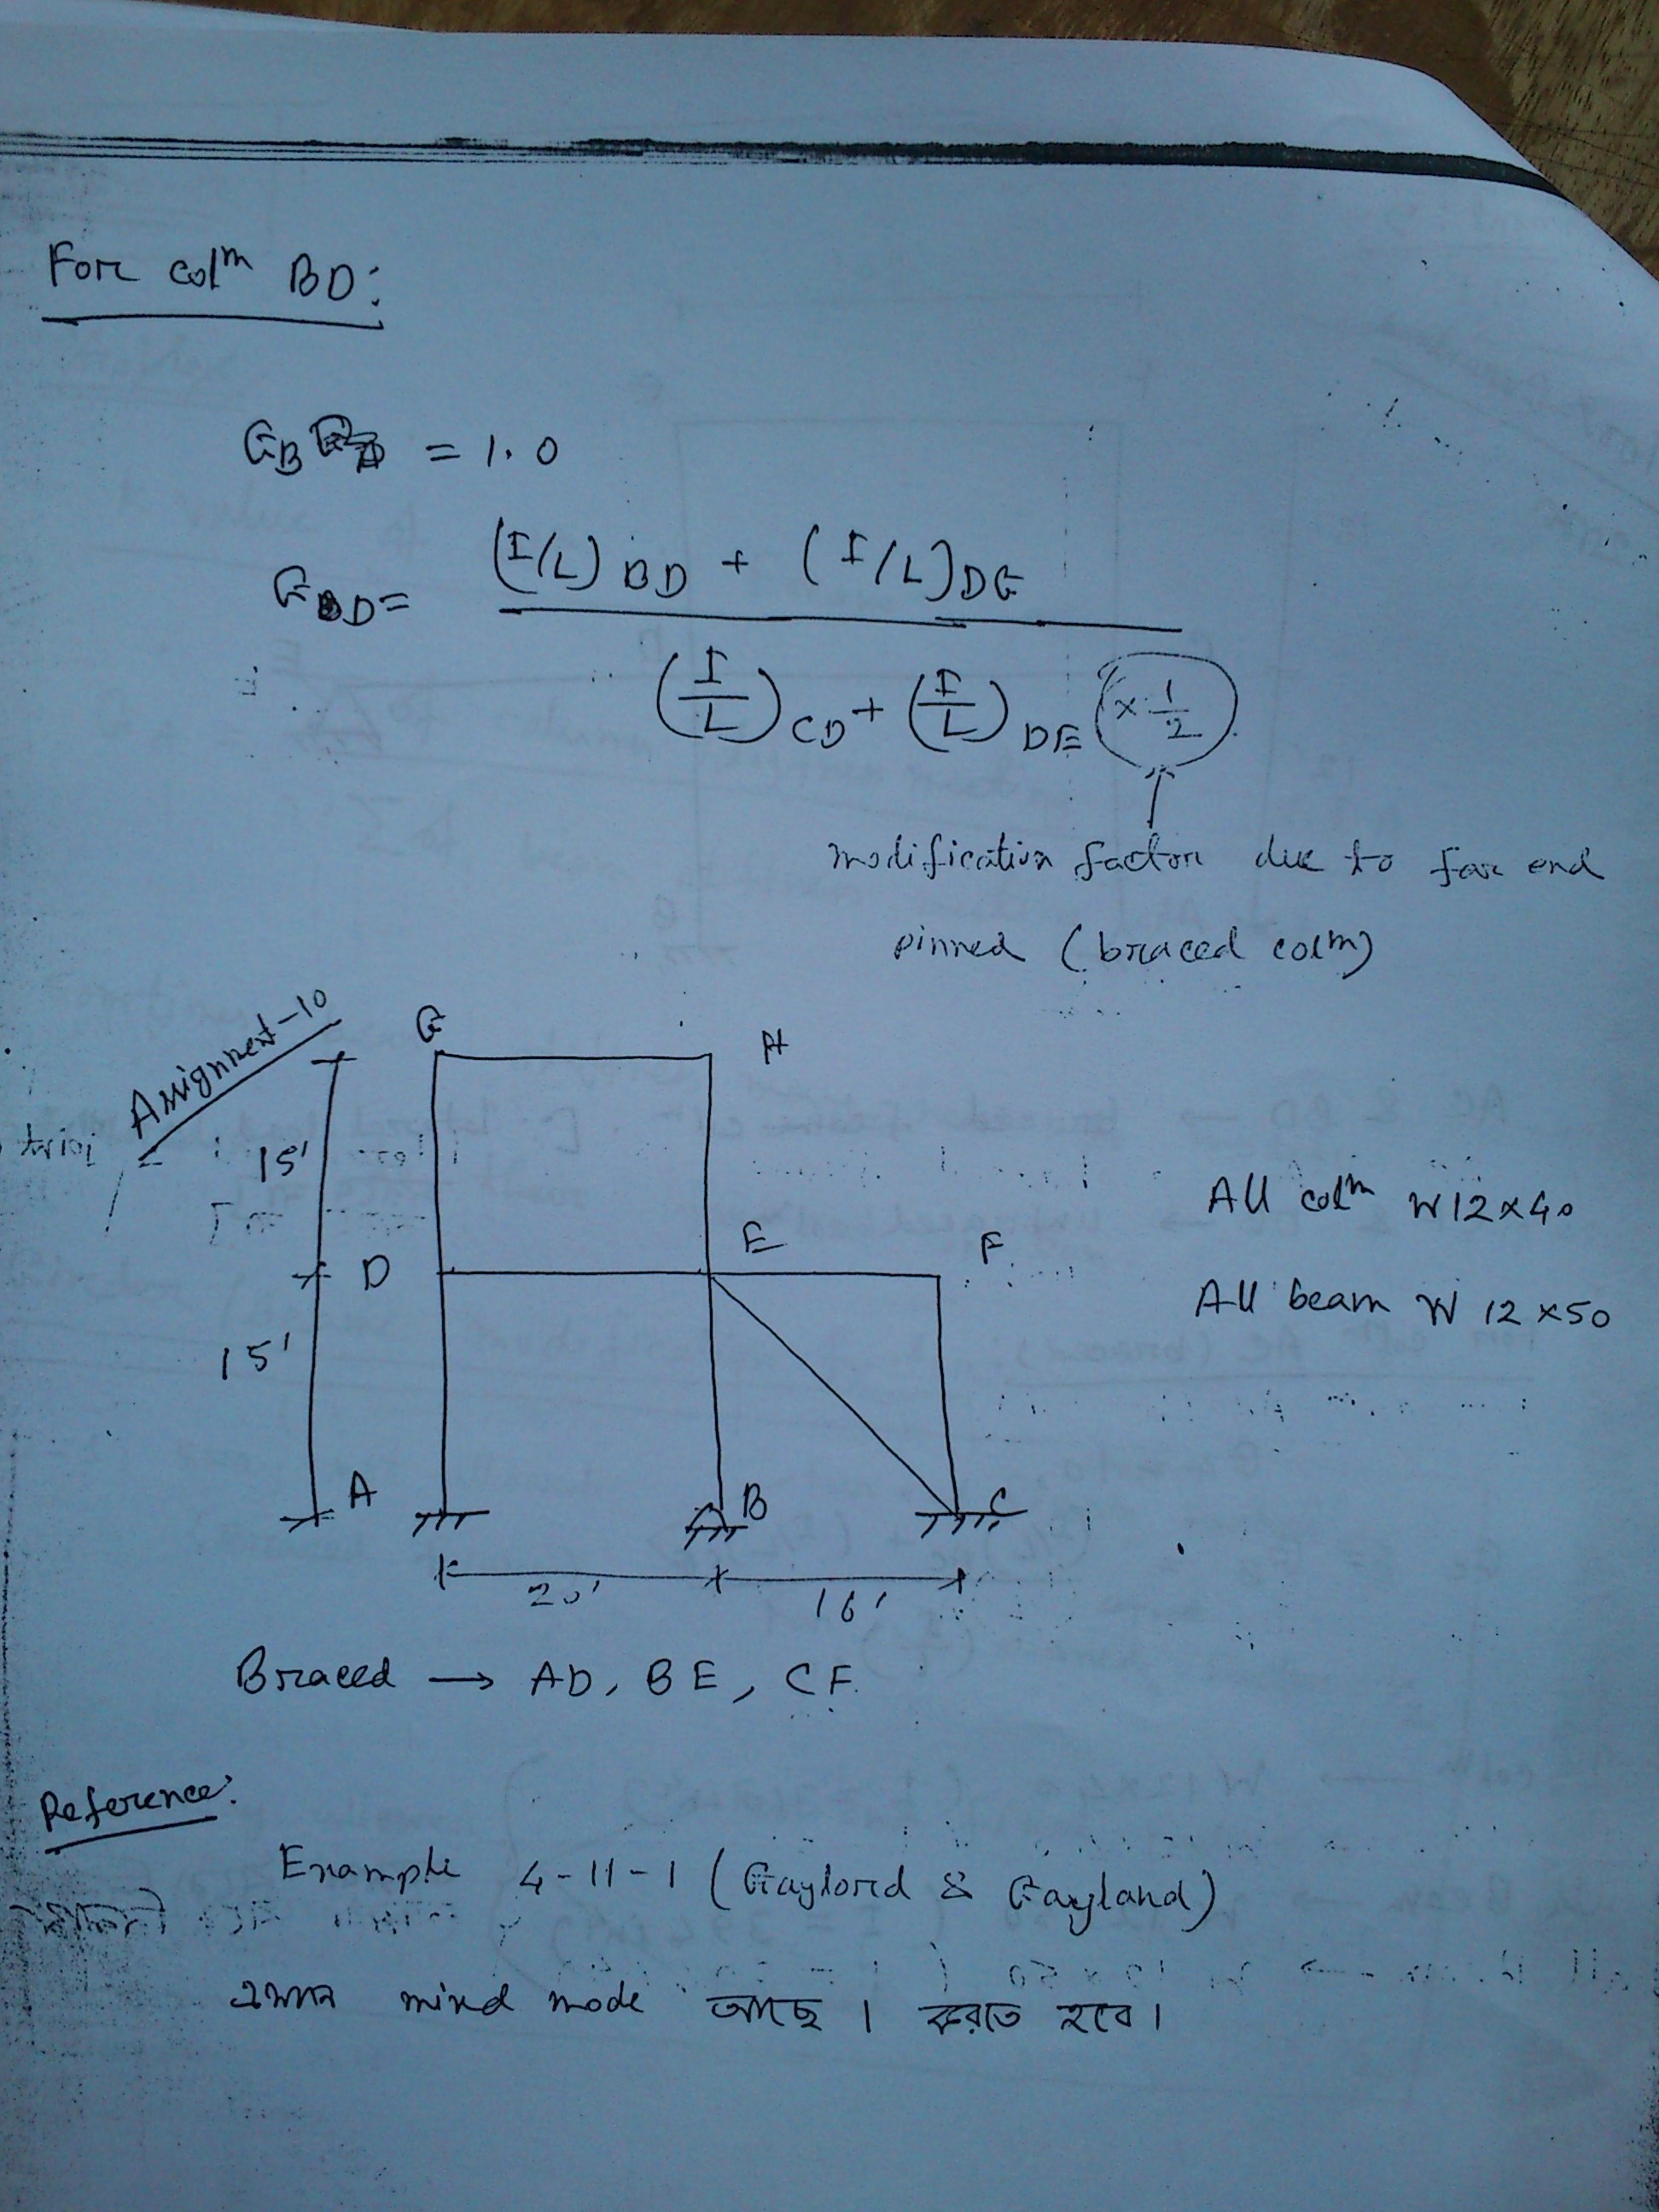 For colm BD:
GB = 1.0
GD = (I/L)BD + (I/L)DG
(I/L)CD + (I/L)DE (× 1/2)
modification factor due to far end
pinned (braced colm)
Assignment-10
G H
15'
D E F
15'
A B C
20' 16'
All colm W12x40
All beam W 12x50
Braced → AD, BE, CF.
Reference:
Example 4-11-1 (Gaylord & Gayland)
mode আছে । করতে হবে।